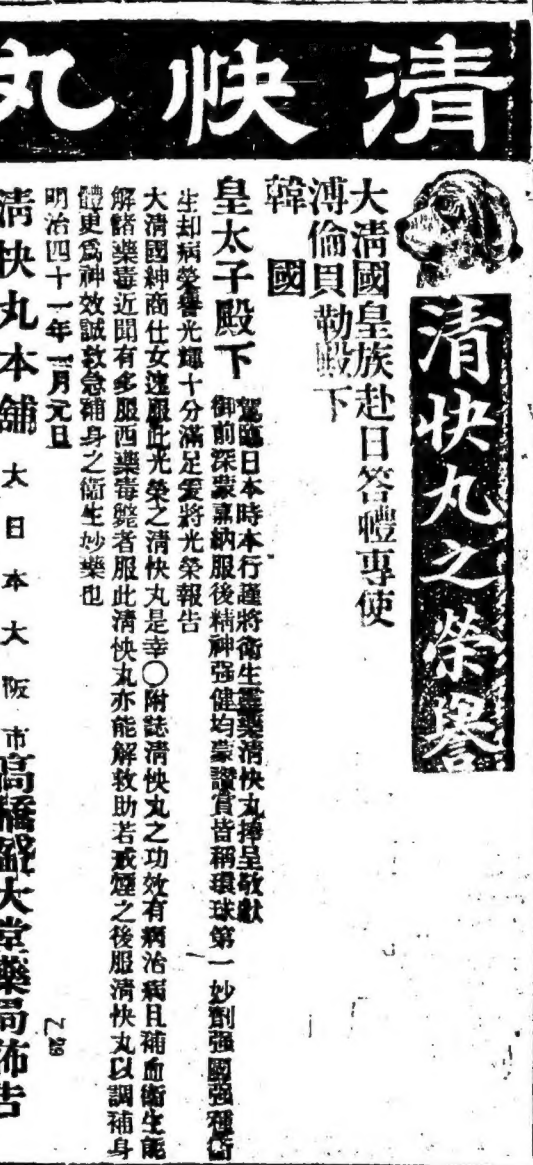 清快丸
清快丸之榮譽
大清國皇族赴日答禮專使
溥倫貝勒殿下
韓國
皇太子殿下
駕臨日本時本行謹將衛生靈藥清快丸捧呈敬獻
御前深蒙嘉納服後精神强健均蒙讚賞皆稱環球第一妙劑强國强種衛
生却病榮譽光輝十分滿足爰將光榮報告
大清國紳商仕女速服此光榮之清快丸是幸〇附誌清快丸之功效有病治病且補血衛生能
解諸藥毒近聞有多服西藥毒斃者服此清快丸亦能解救助若戒煙之後服清快丸以調補身
體更爲神效誠救急補身之衛生妙藥也
明治四十一年一月元旦
清快丸本舖 大日本大阪市高橋盛大堂藥局佈告
乙29